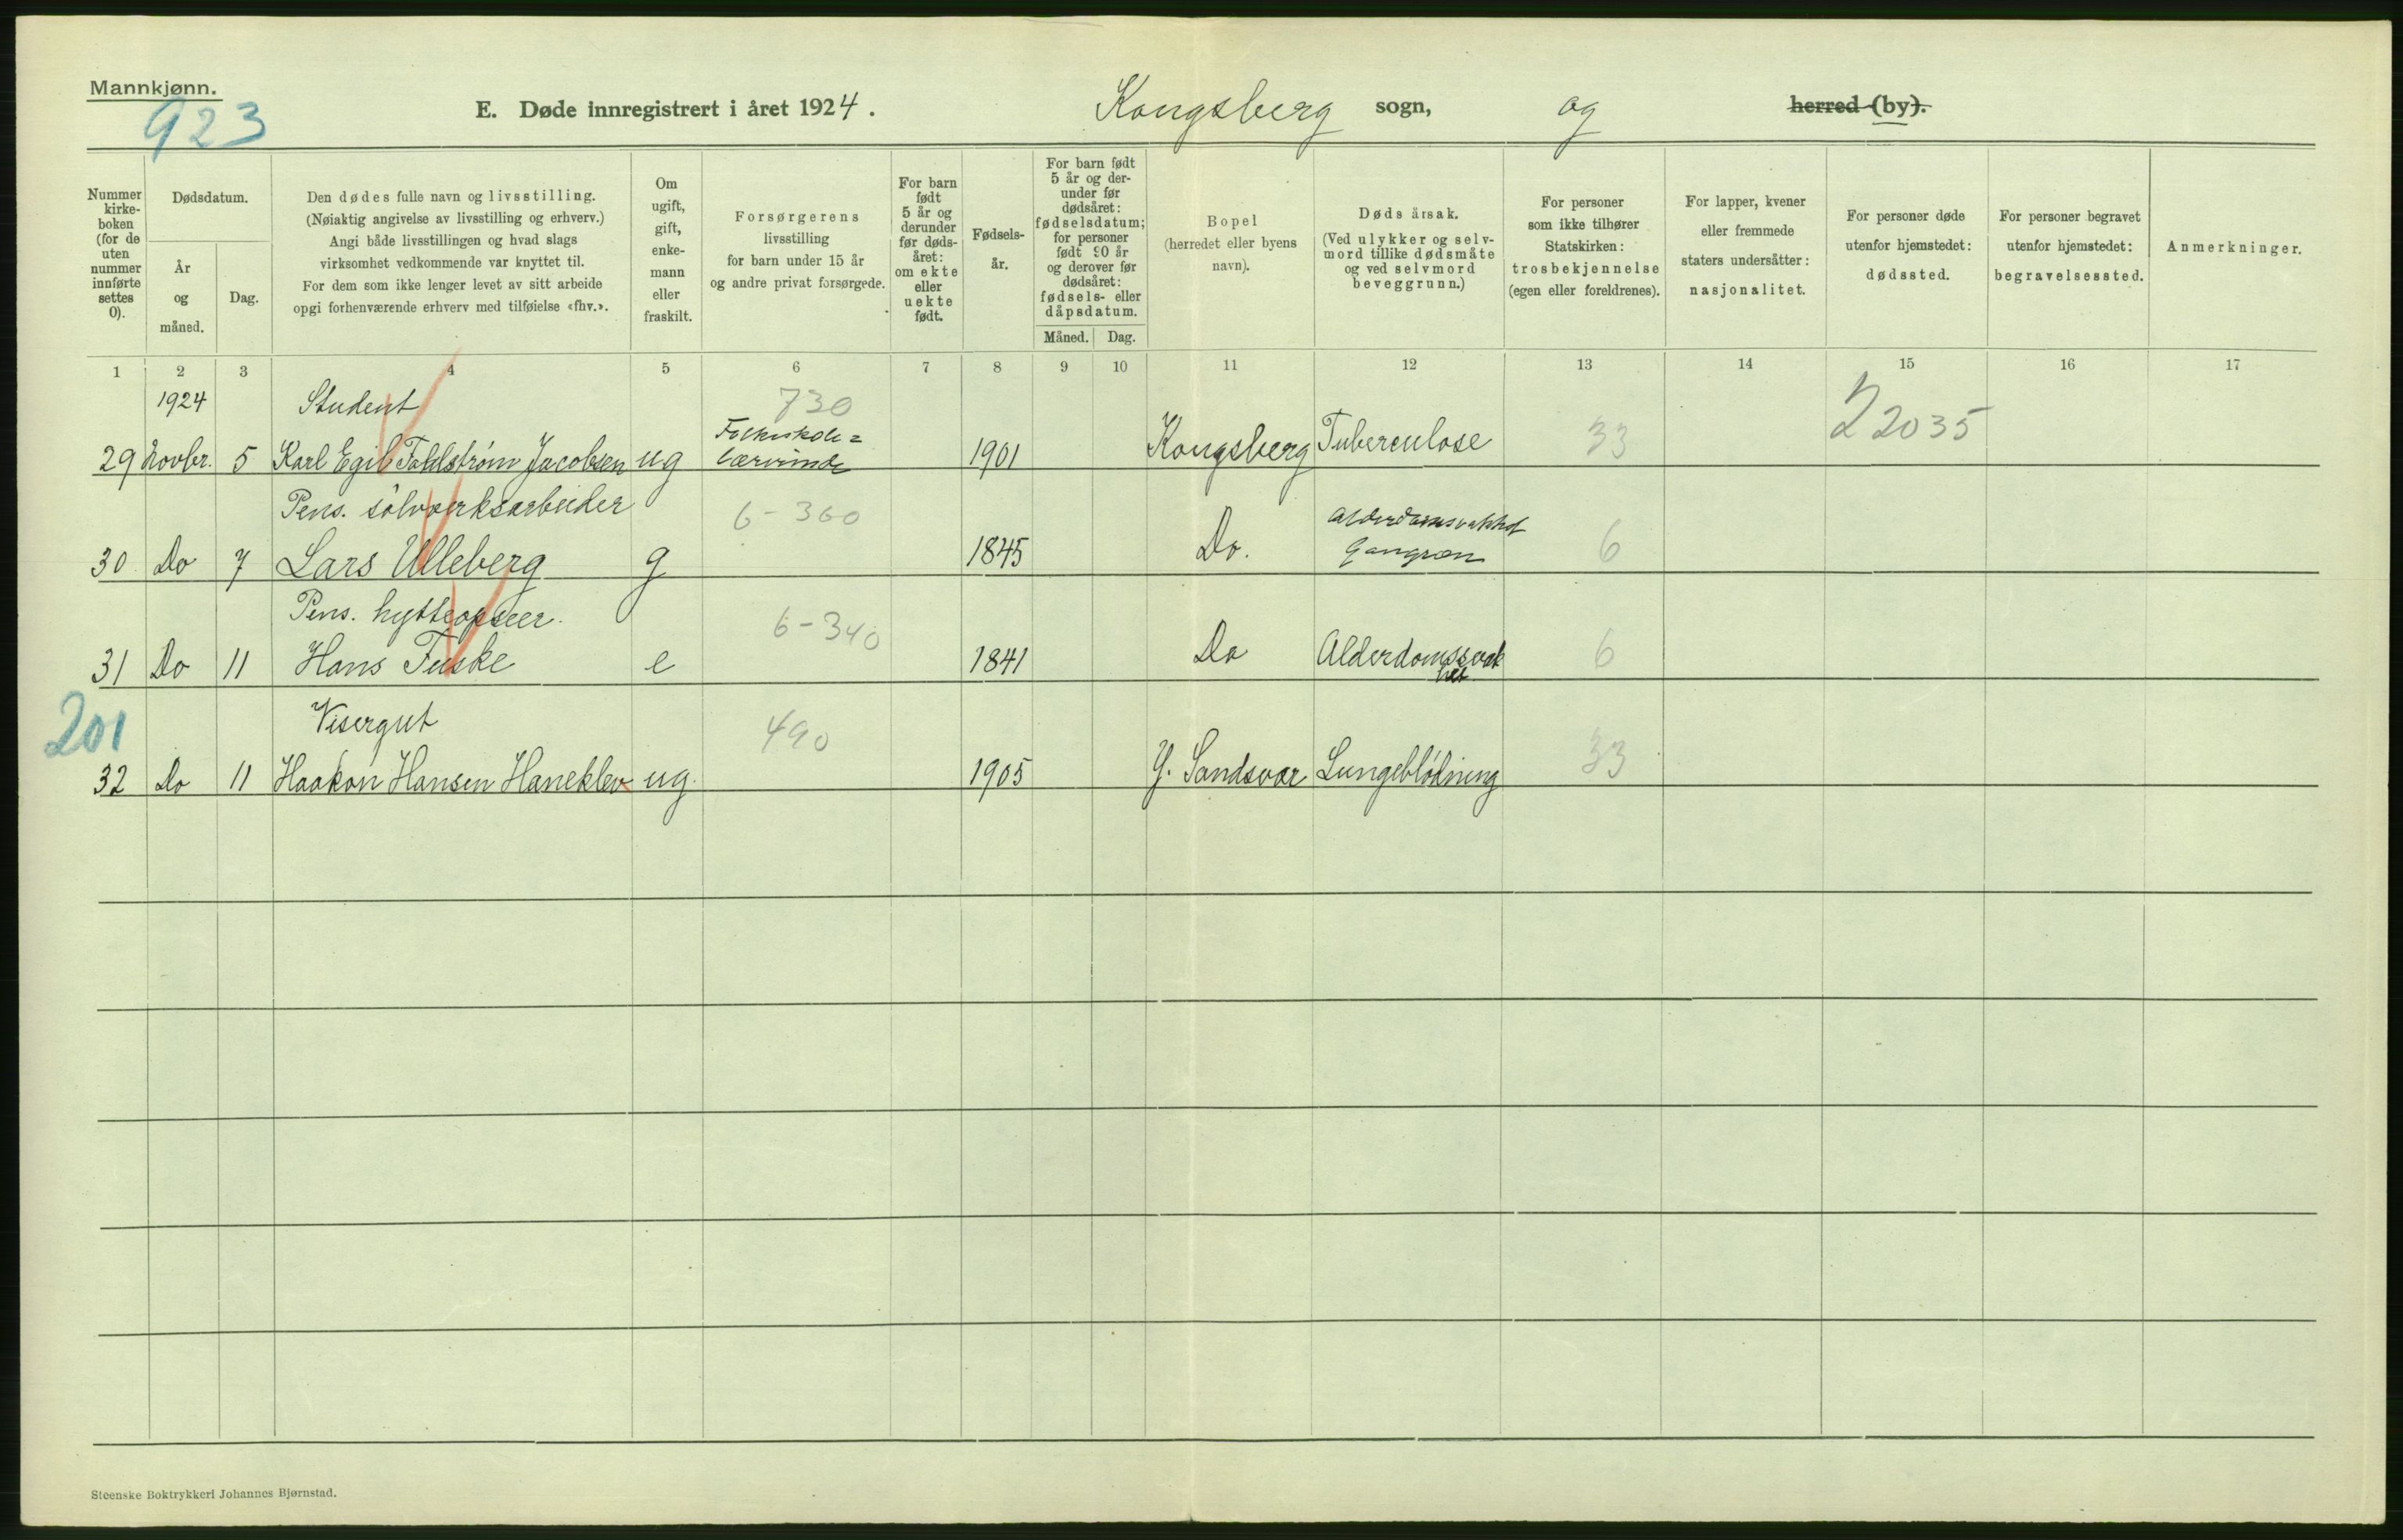 Mannkjønn.
923
E. Døde innregistrert i året 1924.
Kongsberg sogn, og herred (by).
Nummer kirke-boken (for de uten nummer innførte settes 0).
Dødsdatum.
År og måned.
Dag.
Den dødes fulle navn og livsstilling.
(Nøiaktig angivelse av livsstilling og erhverv.)
Angi både livsstillingen og hvad slags
virksomhet vedkommende var knyttet til.
For dem som ikke lenger levet av sitt arbeide
opgi forhenværende erhverv med tilføielse «fhv.».
Om ugift, gift, enke-mann eller fraskilt.
Forsørgerens
livsstilling
for barn under 15 år
og andre privat forsørgede.
For barn født 5 år og derunder før døds-året: om ekte eller uekte født.
Fødsels-år.
For barn født 5 år og der-under før dødsåret: fødselsdatum; for personer født 90 år og derover før dødsåret: fødsels- eller dåpsdatum.
Måned. Dag.
Bopel
(herredet eller byens
navn).
Dødsårsak.
(Ved ulykker og selv-
mord tillike dødsmåte
og ved selvmord
beveggrunn.)
For personer
som ikke tilhører
Statskirken:
trosbekjennelse
(egen eller foreldrenes).
For lapper, kvener
eller fremmede
staters undersåtter:
nasjonalitet.
For personer døde
utenfor hjemstedet:
dødssted.
For personer begravet
utenfor hjemstedet:
begravelsessted.
Anmerkninger.
1 2 3 4 5 6 7 8 9 10 11 12 13 14 15 16 17
1924 Student 730
Folkeskole=
29 Novbr. 5 Karl Egil Fahlstrøm Jacobsen ug lærerinde 1901 Kongsberg Tuberculose 33 22035
Pens. sølvverksarbeider 6-360 Alderdomssvakhet
30 Do 7 Lars Ulleberg g 1845 Do. Gangræn 6
Pens. hytteopseer. 6-340
31 Do 11 Hans Fuske e 1841 Do Alderdomssvak
het 6
201
Visergut 490
32 Do 11 Haakon Hansen Haneklev ug. 1905 Y. Sandsvær Lungeblødning 33
Steenske Boktrykkeri Johannes Bjørnstad.